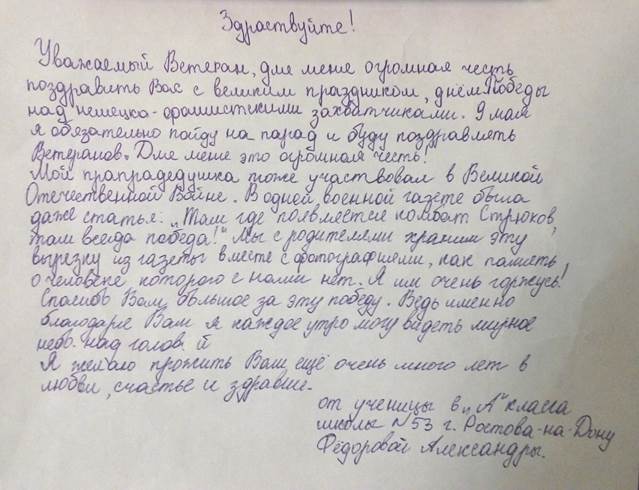 Здраствуйте!
Уважаемый Ветеран, для меня огромная честь
поздравить Вас с великим праздником, днём Победы
над немецко-фашистскими захватчиками. 9 мая
я обязательно пойду на парад и буду поздравлять
Ветеранов. Для меня это огромная честь!
Мой прапрадедушка тоже участвовал в Великой
Отечественной Войне. В одней военной газете была
даже статья: „Там где появляется комбат Стрюков,
там всегда победа!" Мы с родителями храним эту
вырезку из газеты вместе с фотографиями, как память
о человеке которого с нами нет. Я им очень горжусь!
Спасибо Вам, большое за эту победу. Ведь именно
благодаря Вам я каждое утро могу видеть мирное
небо над голов й
Я желаю прожить Вам ещё очень много лет в
любви, счастье и здравие.
от ученицы в „А" класса
школы N 53 г. Ростова-на-Дону
Фёдоровой Александры.